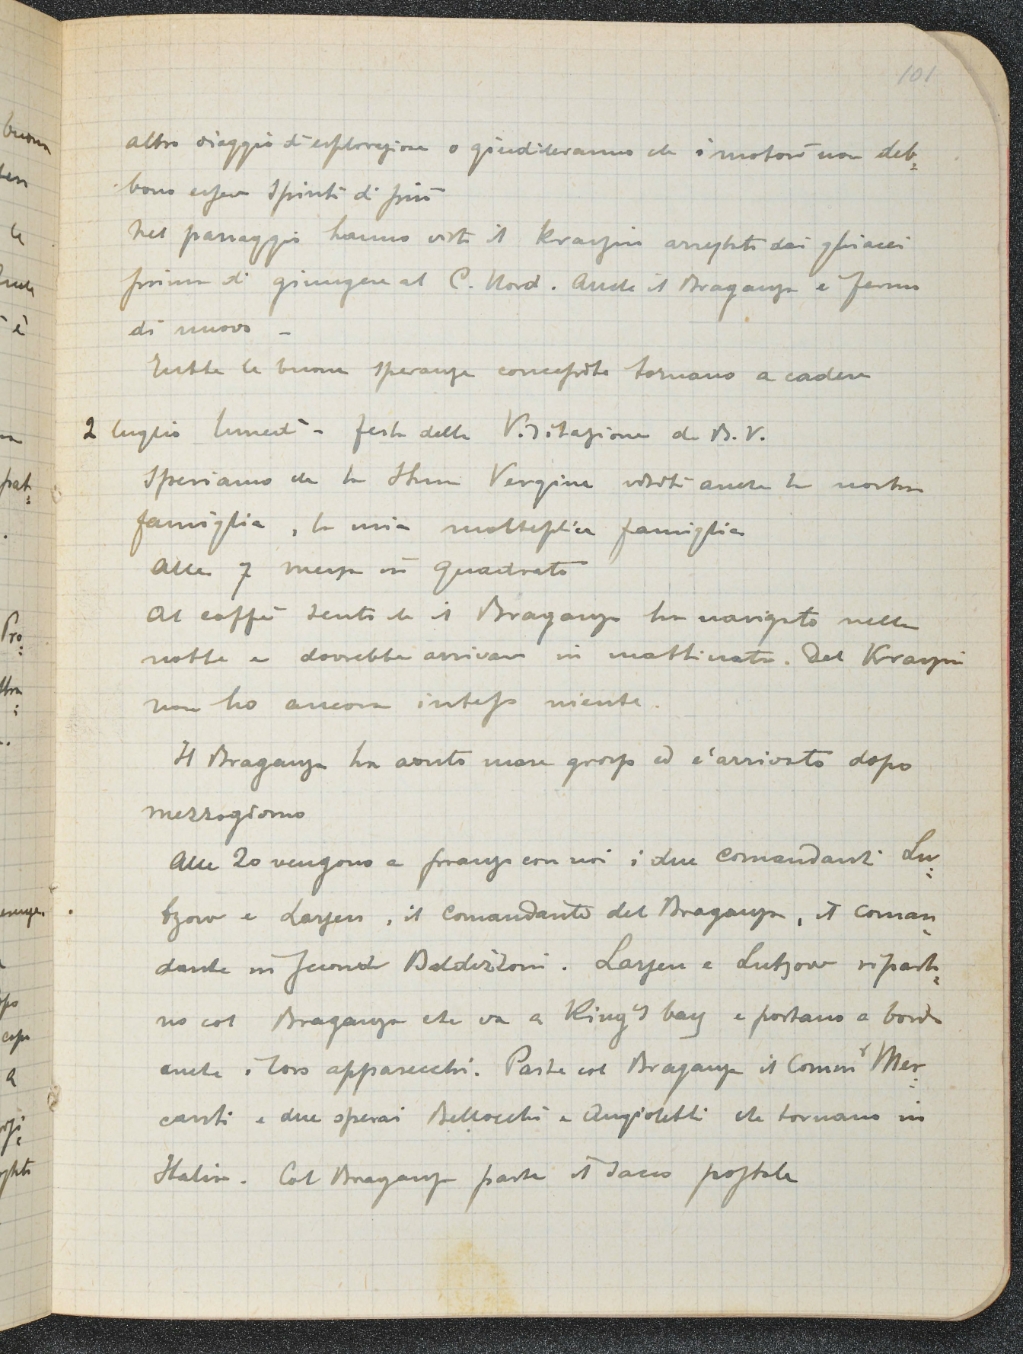 101
altro viaggio d'esplorazione o giudicheranno che i motori non deb-
bono esser spinti di più
Nel passaggio hanno visto il Krassin arrestato dai ghiacci
prima di giungere al C. Nord. Anche il Braganza è fermo
di nuovo -
Tutte le buone speranze concepite tornano a cadere
2 luglio lunedì - festa della Visitazione di B.V.
Speriamo che la SSma Vergine visiti anche la nostra
famiglia, la mia molteplice famiglia
Alle 7 messa in quadrato
Al caffè sento che il Braganza ha navigato nella
notte e dovrebbe arrivare in mattinata. Del Krassin
non ho ancora inteso niente.
Il Braganza ha avuto mare grosso ed è arrivato dopo
mezzogiorno
Alle 20 vengono a pranzo con noi i due comandanti Lu-
tzow e Larsen, il comandante del Braganza, il coman-
dante in seconda Baldizzoni. Larsen e Lutzow riparto-
no col Braganza che va a King's bay e portano a bordo
anche i loro apparecchi. Parte col Braganza il Comm.r Mer-
canti e due operai Bellocchi e Angioletti che tornano in
Italia. Col Braganza parte il sacco postale